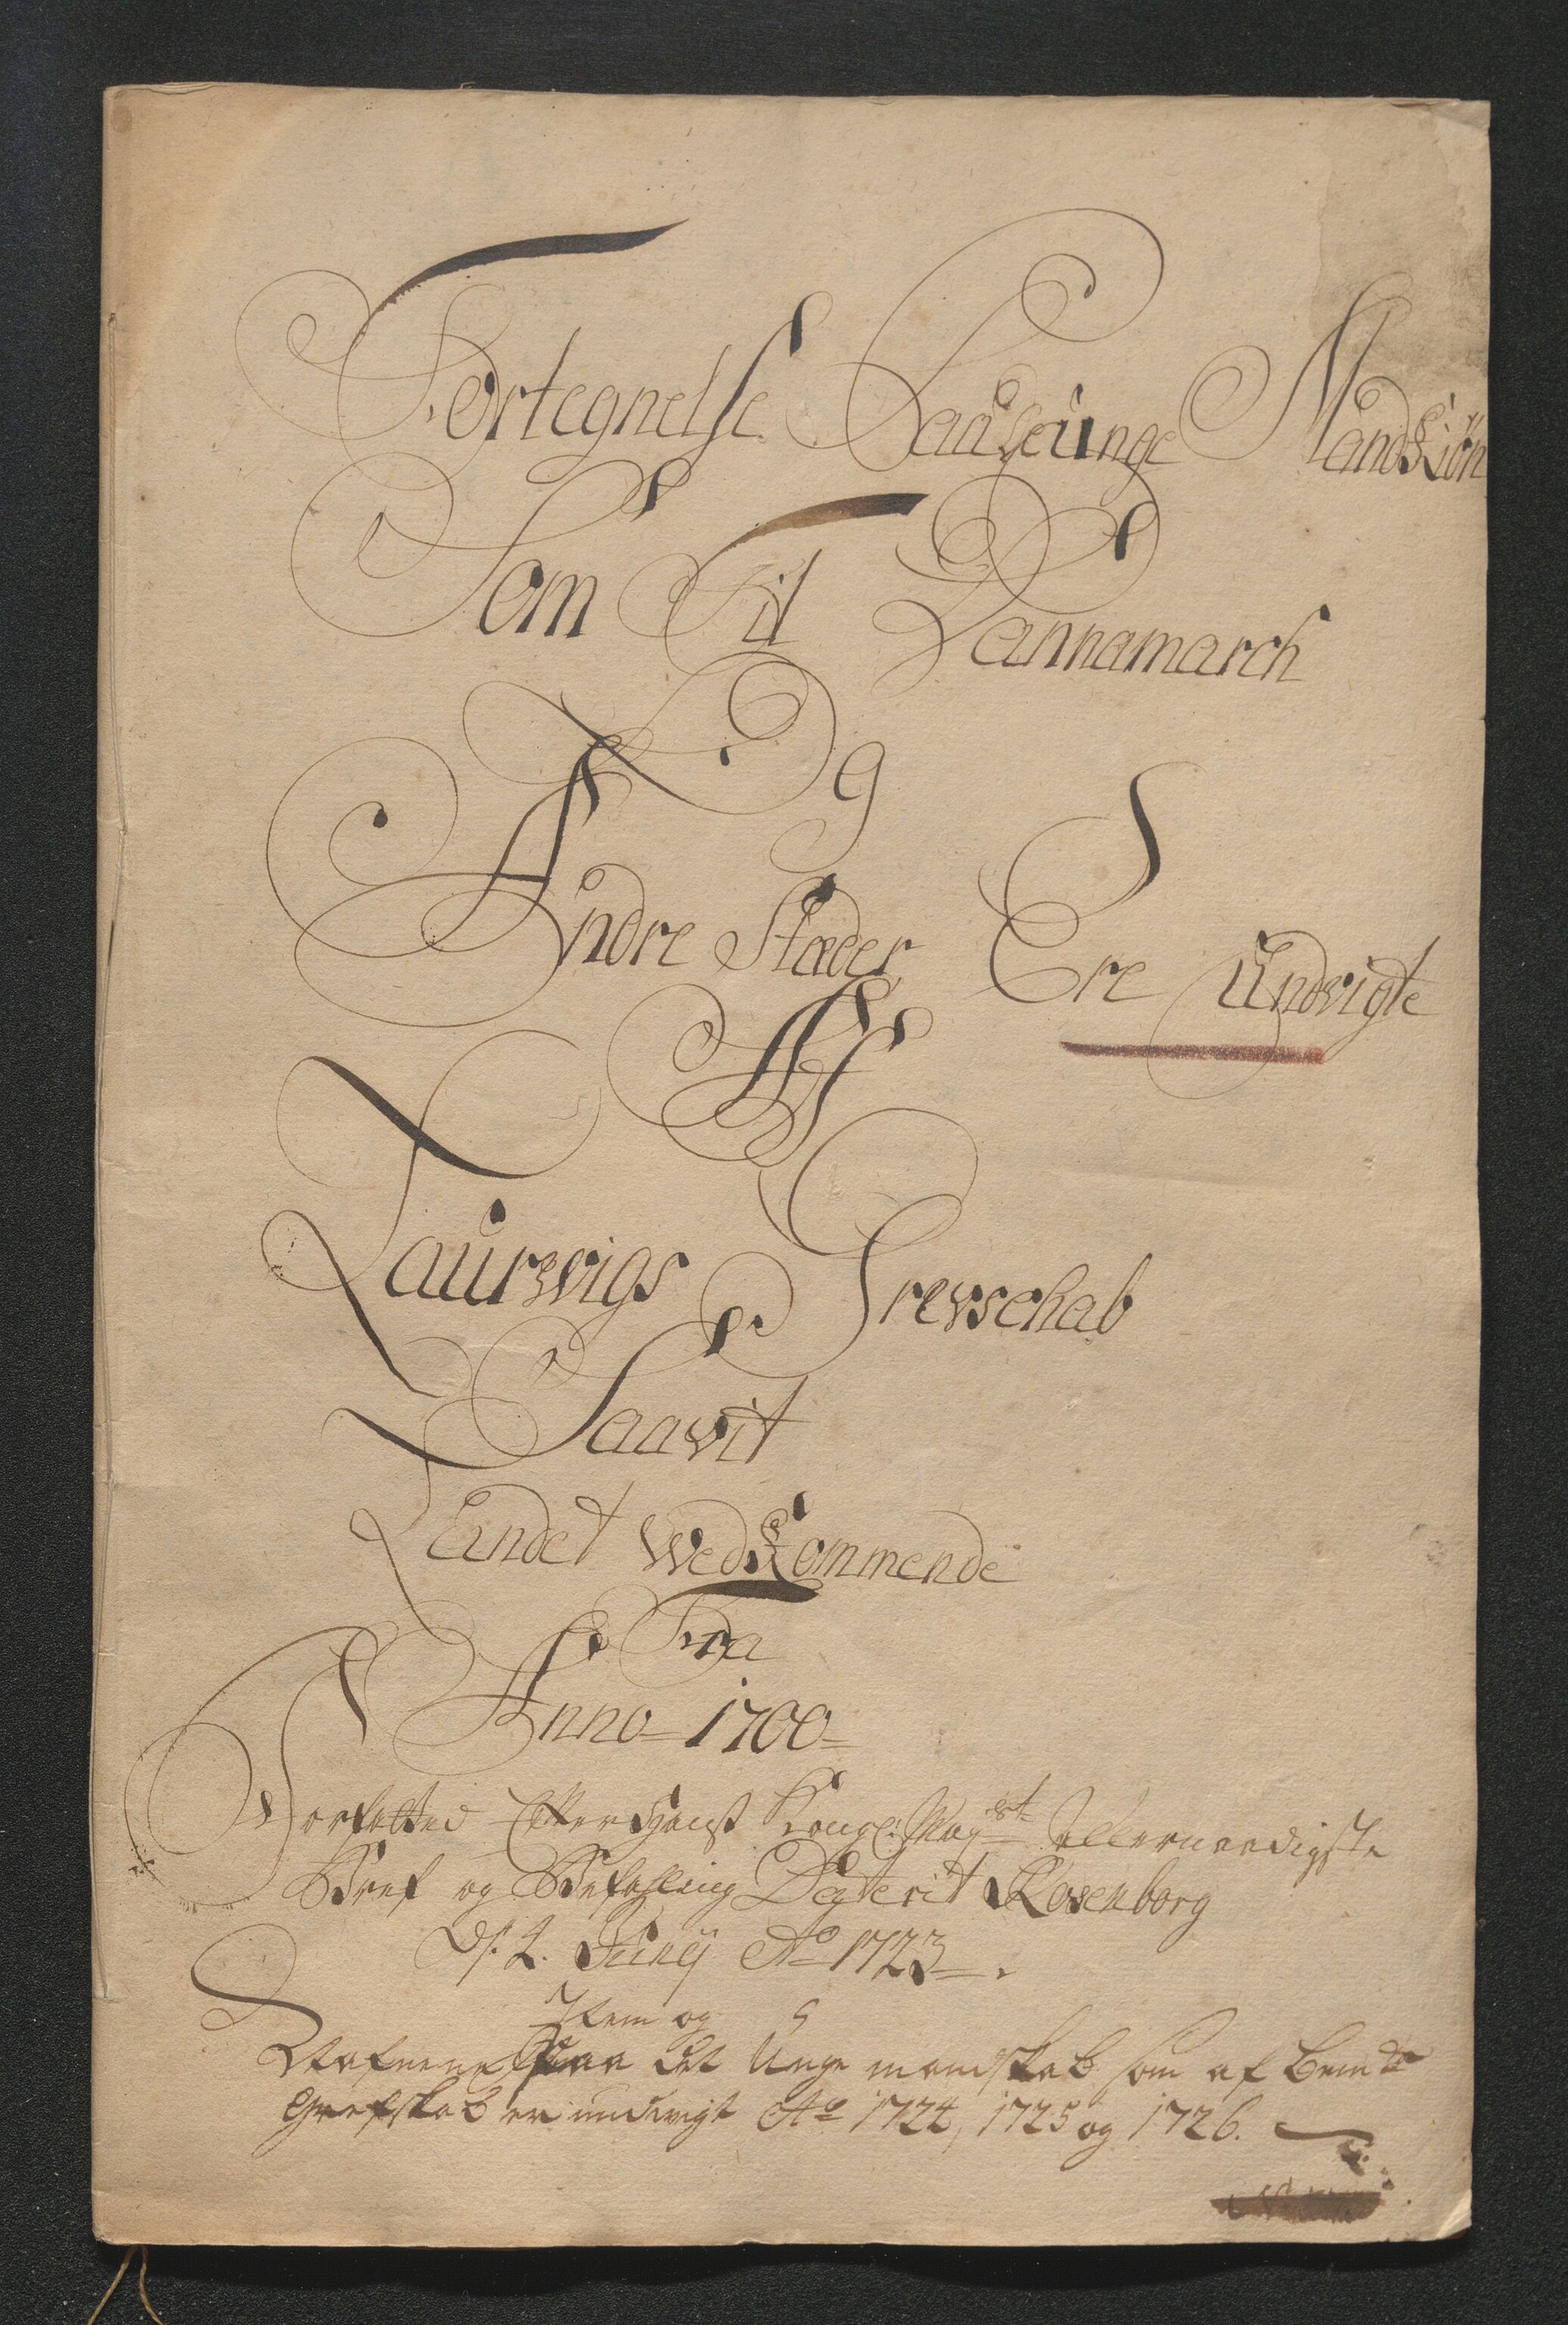 Fortegnelse Paa de unge Mandkiön
Som Til Dannamarch
Og
Andre Stæder Ere Undvigte
Af
Laurwigs Grevschab
Saavit
Landet Wedkommende
Fra
Anno 1700
Forfatted Efter Hans Kongl: May:st Allernaadigste
Bref og Befahling Dateret Rosenborg
D. 2. Junij Ao 1723.
Item og
Nafnene paa det Unge mandskab som af bemte
Grefskab er undvigt Ao 1724, 1725 og 1726.